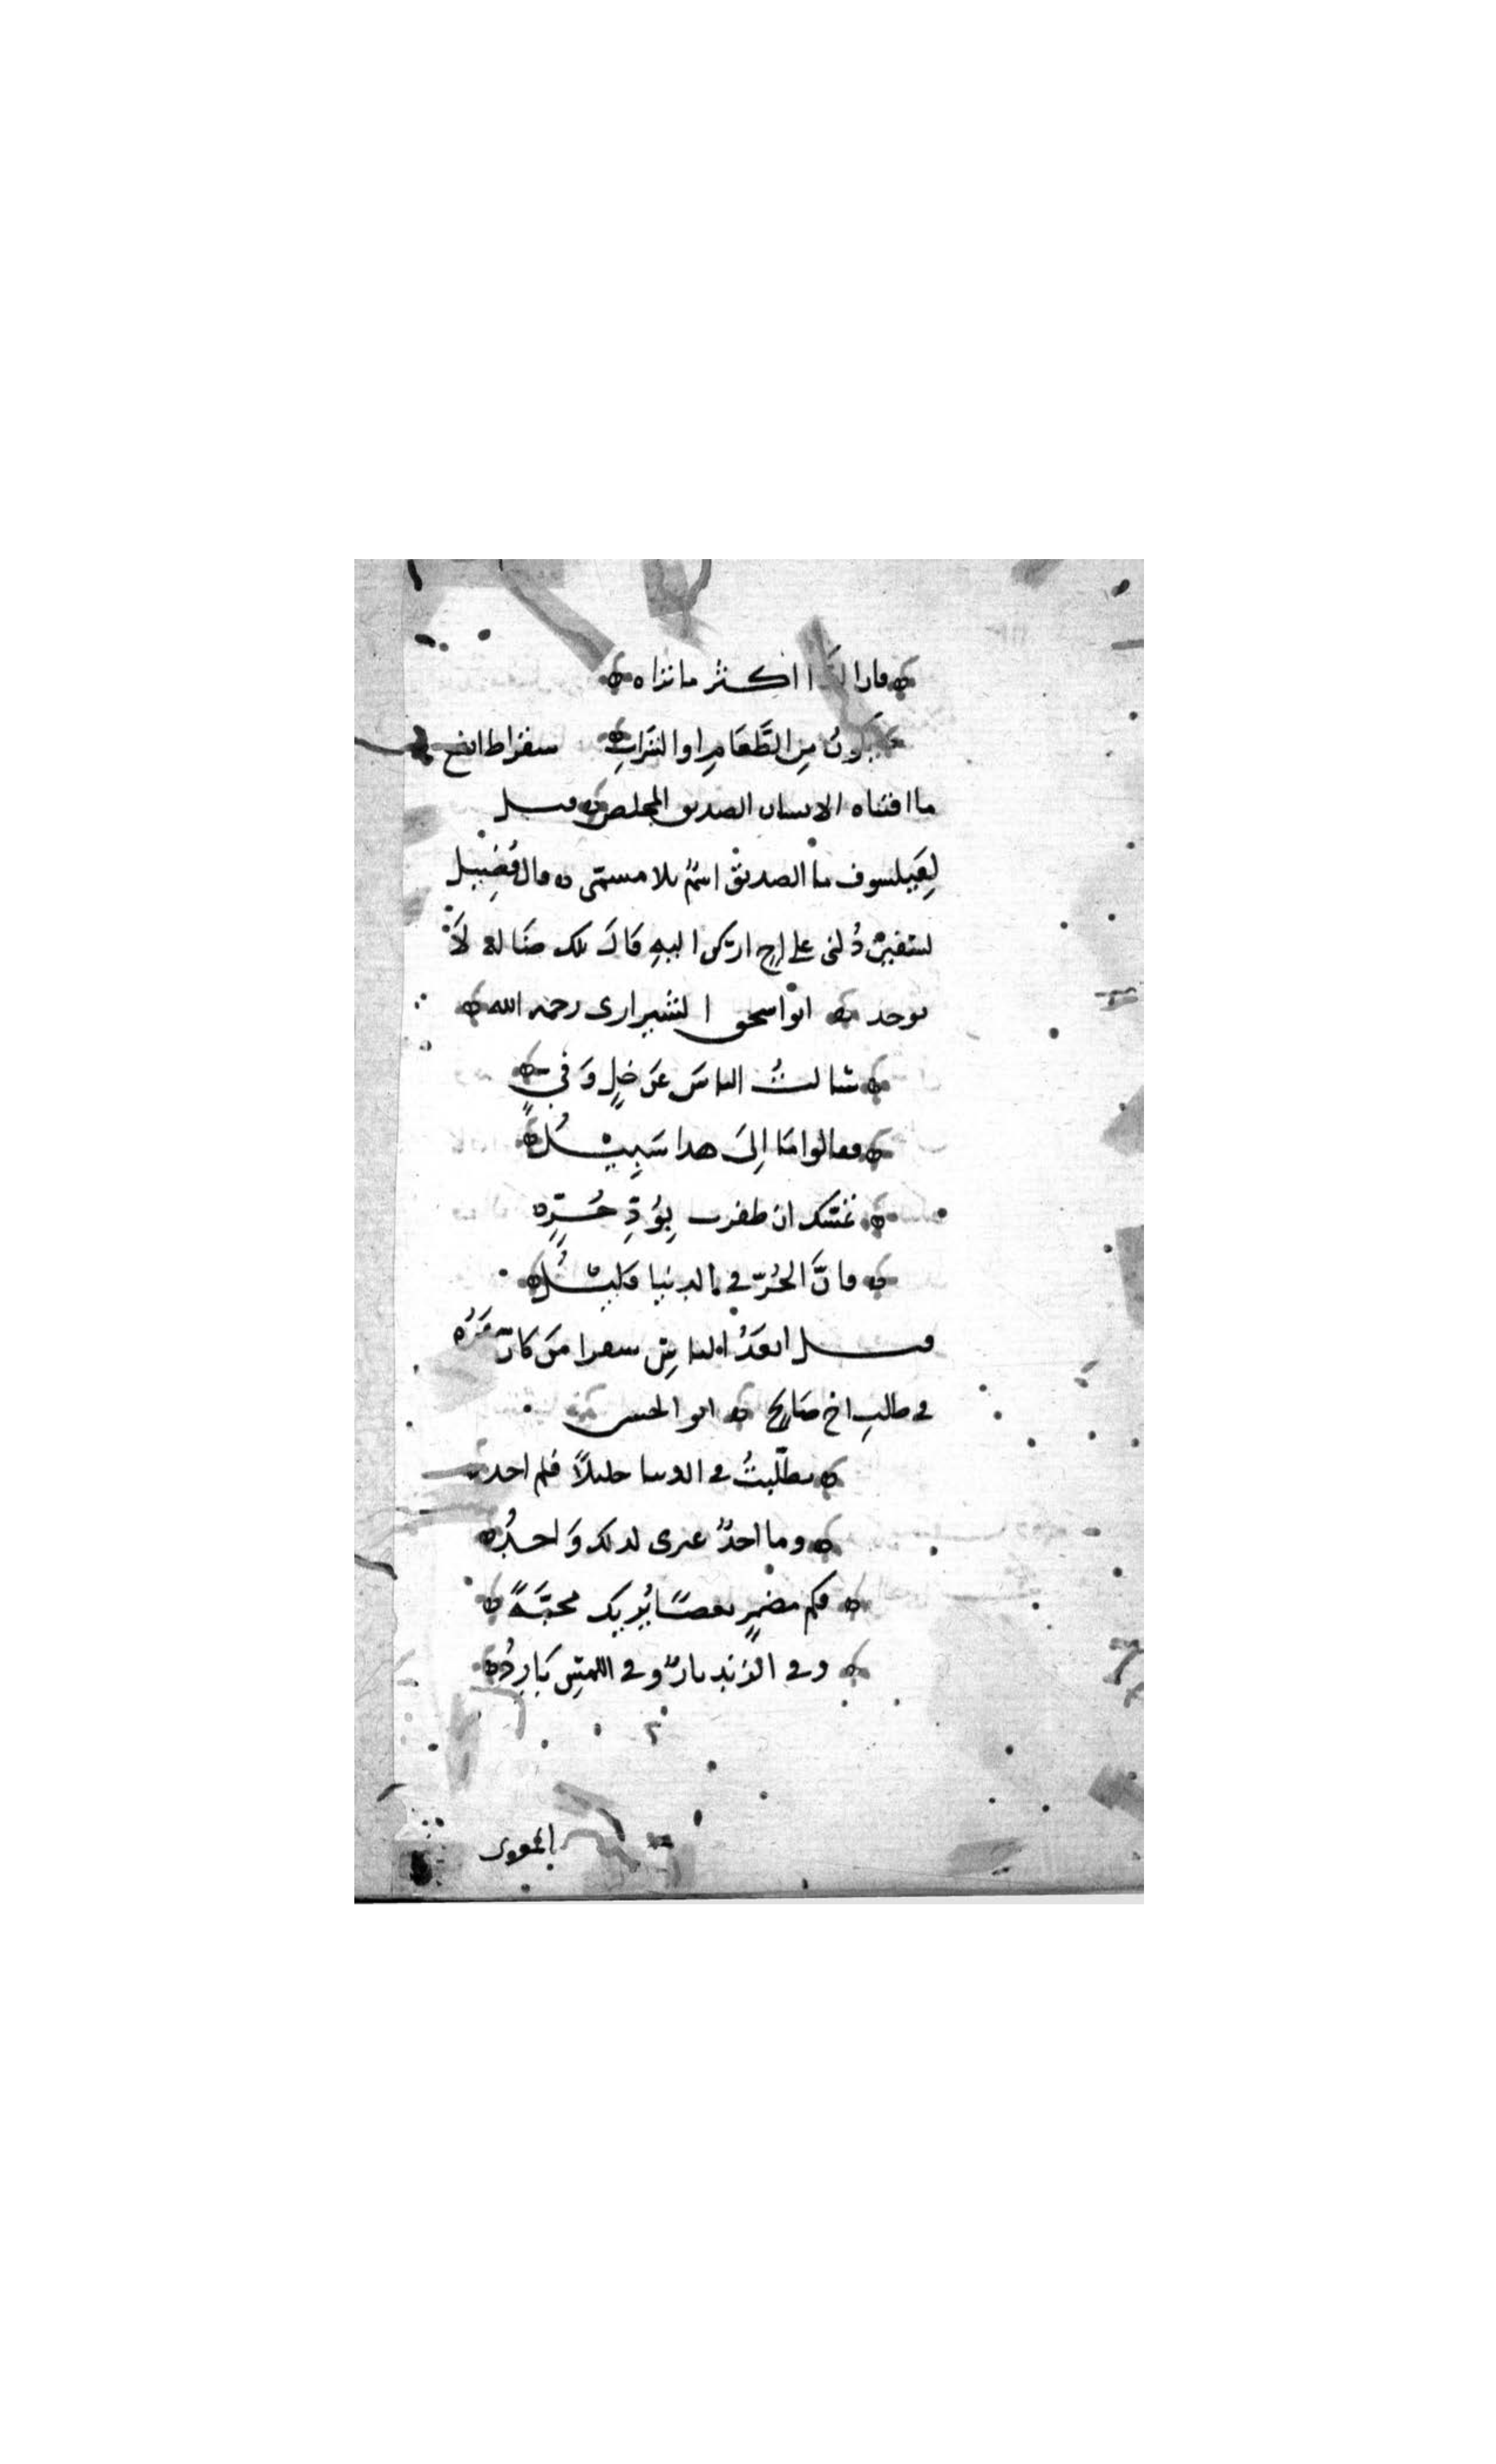 فان الدا اكثر ما تراه
يكون من الطعام او الشراب سقراط انفع
ما اقتناه الانسان الصديق المخلص قيل
لفيلسوف ما الصديق اسمٌ بلا مسمّى وقال فُضيل
لسفين دُلنى على اخٍ اركن اليهِ قال تلك ضالة لا
توجد ابو اسحق الشيرازى رحمه الله
سالتُ الناسَ عن خلٍ وَفيٍّ
فقالوا مَا الىَ هذا سَبِيْلُ
تمسّك ان ظفرت بِوُدِّ حُرٍّ
فانَّ الحُرّ في الدنيا قليلُ
قيل ابعَدُ الناسِ سفرا من كان سَفَرُه
في طلبِ اخ صَالحٍ ابو الحسن
تطلّبتُ في الدنيا خليلاً فلم اجد
وما احدٌ غيرى لذلك وَاجدُ
فكم مضمرٍ بغضًا يُرِيك محبّةً
وفي الزندِ نارٌ وفي اللمسِ بَارِدُ